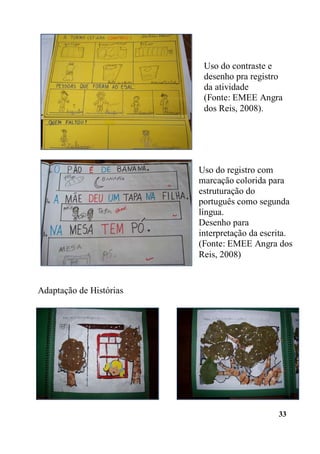 Uso do contraste e
desenho pra registro
da atividade
(Fonte: EMEE Angra
dos Reis, 2008).
PESSOAS QUE FORAM AO
QUEM FALTOU?
O PÃO É DE BANANA.
BANANA
A MÃE DEU UM TAPA NA FILHA.
MÃE
TAPA
NA MESA TEM PÓ.
MESA
PÓ
Uso do registro com
marcação colorida para
estruturação do
português como segunda
língua.
Desenho para
interpretação da escrita.
(Fonte: EMEE Angra dos
Reis, 2008)
Adaptação de Histórias
33